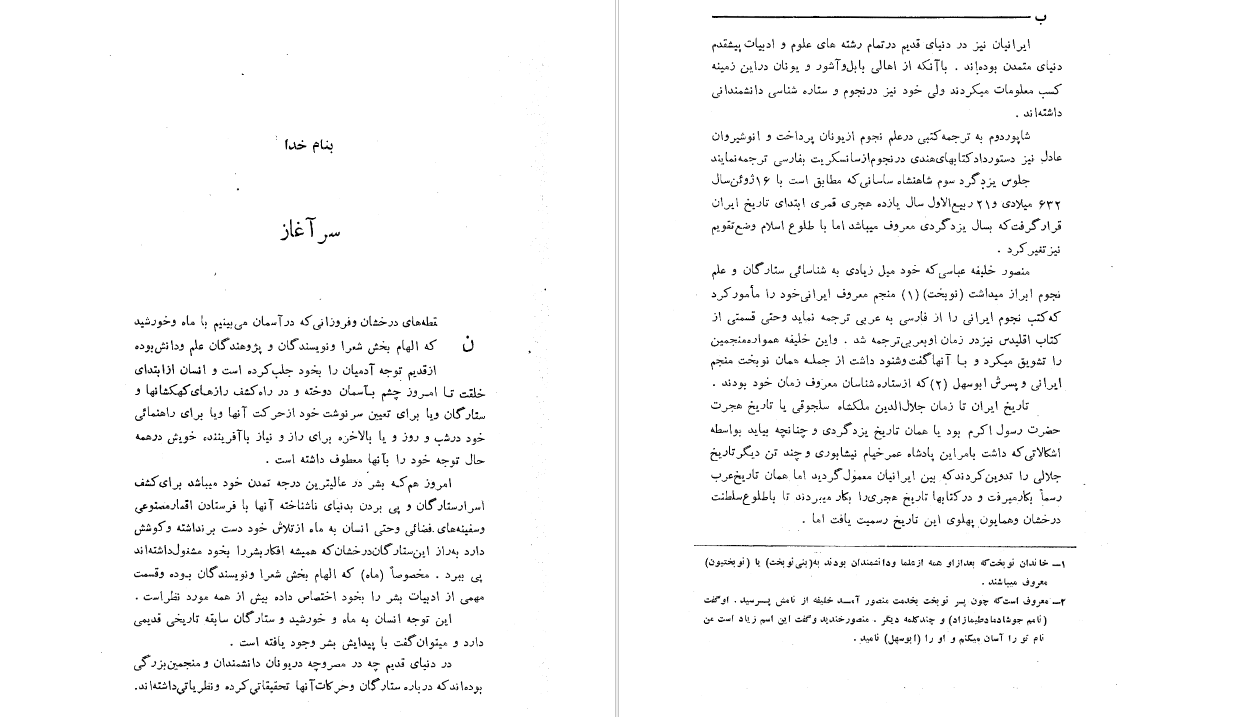 بنام خدا
سرآغاز
نقطه‌های درخشان وفروزانی‌که درآسمان می‌بینیم با ماه وخورشید
که الهام بخش شعرا ونویسندگان و پژوهندگان علم ودانش‌بوده
ازقدیم توجه آدمیان را بخود جلب‌کرده است و انسان ازابتدای
خلقت تـا امـروز چشم بـآسمان دوخته و در راه‌کشف رازهـای‌کهکشانها و
ستارگان ویا برای تعیین سرنوشت خود ازحرکت آنها ویا برای راهنمائی
خود درشب و روز و یا بالاخره برای راز و نیاز باآفریننده خویش درهمه
حال توجه خود را بآنها معطوف داشته است .
امروز هم‌که بشر در عالیترین درجه تمدن خود میباشد برای‌کشف
اسرارستارگان و پی بردن بدنیای ناشناخته آنها با فرستادن اقمارمصنوعی
وسفینه‌های فضائی وحتی انسان به ماه ازتلاش خود دست برنداشته وکوشش
دارد به‌راز این‌ستارگان‌درخشان‌که همیشه افکاربشررا بخود مشغول‌داشته‌اند
پی ببرد . مخصوصاً (ماه) که الهام بخش شعرا ونویسندگان بـوده وقسمت
مهمی از ادبیات بشر را بخود اختصاص داده بیش از همه مورد نظراست .
این توجه انسان به ماه و خورشید و ستارگان سابقه تاریخی قدیمی
دارد و میتوان‌گفت با پیدایش بشر وجود یافته است .
در دنیای قدیم چه در مصروچه دریونان دانشمندان و منجمین‌بزرگی
بوده‌اندکه درباره ستارگان وحرکات‌آنها تحقیقاتی‌کرده ونظریاتی‌داشته‌اند.
ب
ایرانیان نیز در دنیای قدیم درتمام رشته های علوم و ادبیات پیشقدم
دنیای متمدن بوده‌اند . باآنکه از اهالی بابل‌وآشور و یونان دراین زمینه
کسب معلومات میکردند ولی خود نیز درنجوم و ستاره شناسی دانشمندانی
داشته‌اند .
شاپوردوم به ترجمه‌کتبی درعلم نجوم ازیونان پرداخت و انوشیروان
عادل نیز دستورداد‌کتابهای‌هندی درنجوم‌ازسانسکریت بفارسی ترجمه‌نمایند
جلوس یزدگرد سوم شاهنشاه ساسانی‌که مطابق است با ۱۶ژوئن‌سال
۶۳۲ میلادی و۲۱ ربیع‌الاول سال یازده هجری قمری ابتدای تاریخ ایران
قرارگرفت‌که بسال یزدگردی معروف میباشد اما با طلوع اسلام وضع‌تقویم
نیزتغیرکرد .
منصور خلیفه عباسی‌که خود میل زیادی به شناسائی ستارگان و علم
نجوم ابراز میداشت (نوبخت) (۱) منجم معروف ایرانی‌خود را مأمورکرد
که‌کتب نجوم ایرانی را از فارسی به عربی ترجمه نماید وحتی قسمتی از
کتاب اقلیدس نیزدر زمان اوبعربی‌ترجمه شد . واین خلیفه همواره‌منجمین
را تشویق میکرد و بـا آنهاگفت‌وشنود داشت از جملـه همـان نوبخت منجم
ایرانی و پسرش ابوسهل (۲)که ازستاره‌شناسان معروف زمان خود بودند .
تاریخ ایران تا زمان جلال‌الدین ملکشاه سلجوقی یا تاریخ هجرت
حضرت رسول اکرم بود یا همان تاریخ یزدگردی و چنانچه بیاید بواسطه
اشکالاتی‌که داشت بامراین پادشاه عمرخیام نیشابوری و چند تن دیگرتاریخ
جلالی را تدوین‌کردندکه بین ایرانیان معمول‌گردید اما همان تاریخ‌عرب
رسماً بکارمیرفت و درکتابها تاریخ هجری‌را بکار میبردند تا باطلوع‌سلطنت
درخشان وهمایون پهلوی این تاریخ رسمیت یافت اما .
۱ــ خاندان نوبخت‌که بعدازاو همه ازعلما ودانشمندان بودند به(بنی‌نوبخت) یا (نوبختیون)
معروف میباشند .
۲ــ معروف است‌که چون پسر نوبخت بخدمت منصور آمـد خلیفه از نامش پـرسید . اوگفت
(نامم جوشادماد‌طیمازاد) و چندکلمه دیگر . منصورخندید وگفت این اسم زیاد است من
نام تو را آسان میکنم و او را (ابوسهل) نامید .